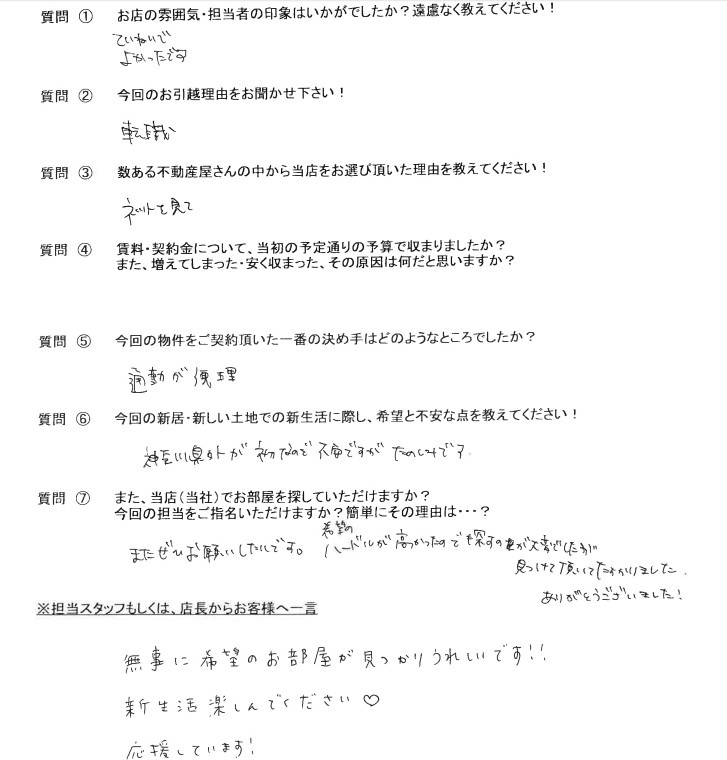 質問 ① お店の雰囲気・担当者の印象はいかがでしたか？遠慮なく教えてください！
ていねいで
よかったです
質問 ② 今回のお引越理由をお聞かせ下さい！
転職
質問 ③ 数ある不動産屋さんの中から当店をお選び頂いた理由を教えてください！
ネットを見て
質問 ④ 賃料・契約金について、当初の予定通りの予算で収まりましたか？
また、増えてしまった・安く収まった、その原因は何だと思いますか？
質問 ⑤ 今回の物件をご契約頂いた一番の決め手はどのようなところでしたか？
通勤が便理
質問 ⑥ 今回の新居・新しい土地での新生活に際し、希望と不安な点を教えてください！
神奈川県外が初なので不安ですがたのしみです
質問 ⑦ また、当店（当社）でお部屋を探していただけますか？
今回の担当をご指名いただけますか？簡単にその理由は・・・？
希望の
またぜひお願いしたいです。 ハードルが高かったので探すの が大変でしたが
見つけて頂いてたすかりました.
ありがとうございました！
※担当スタッフもしくは、店長からお客様へ一言
無事に希望のお部屋が見つかりうれしいです！！
新生活楽しんでください♡
応援しています！